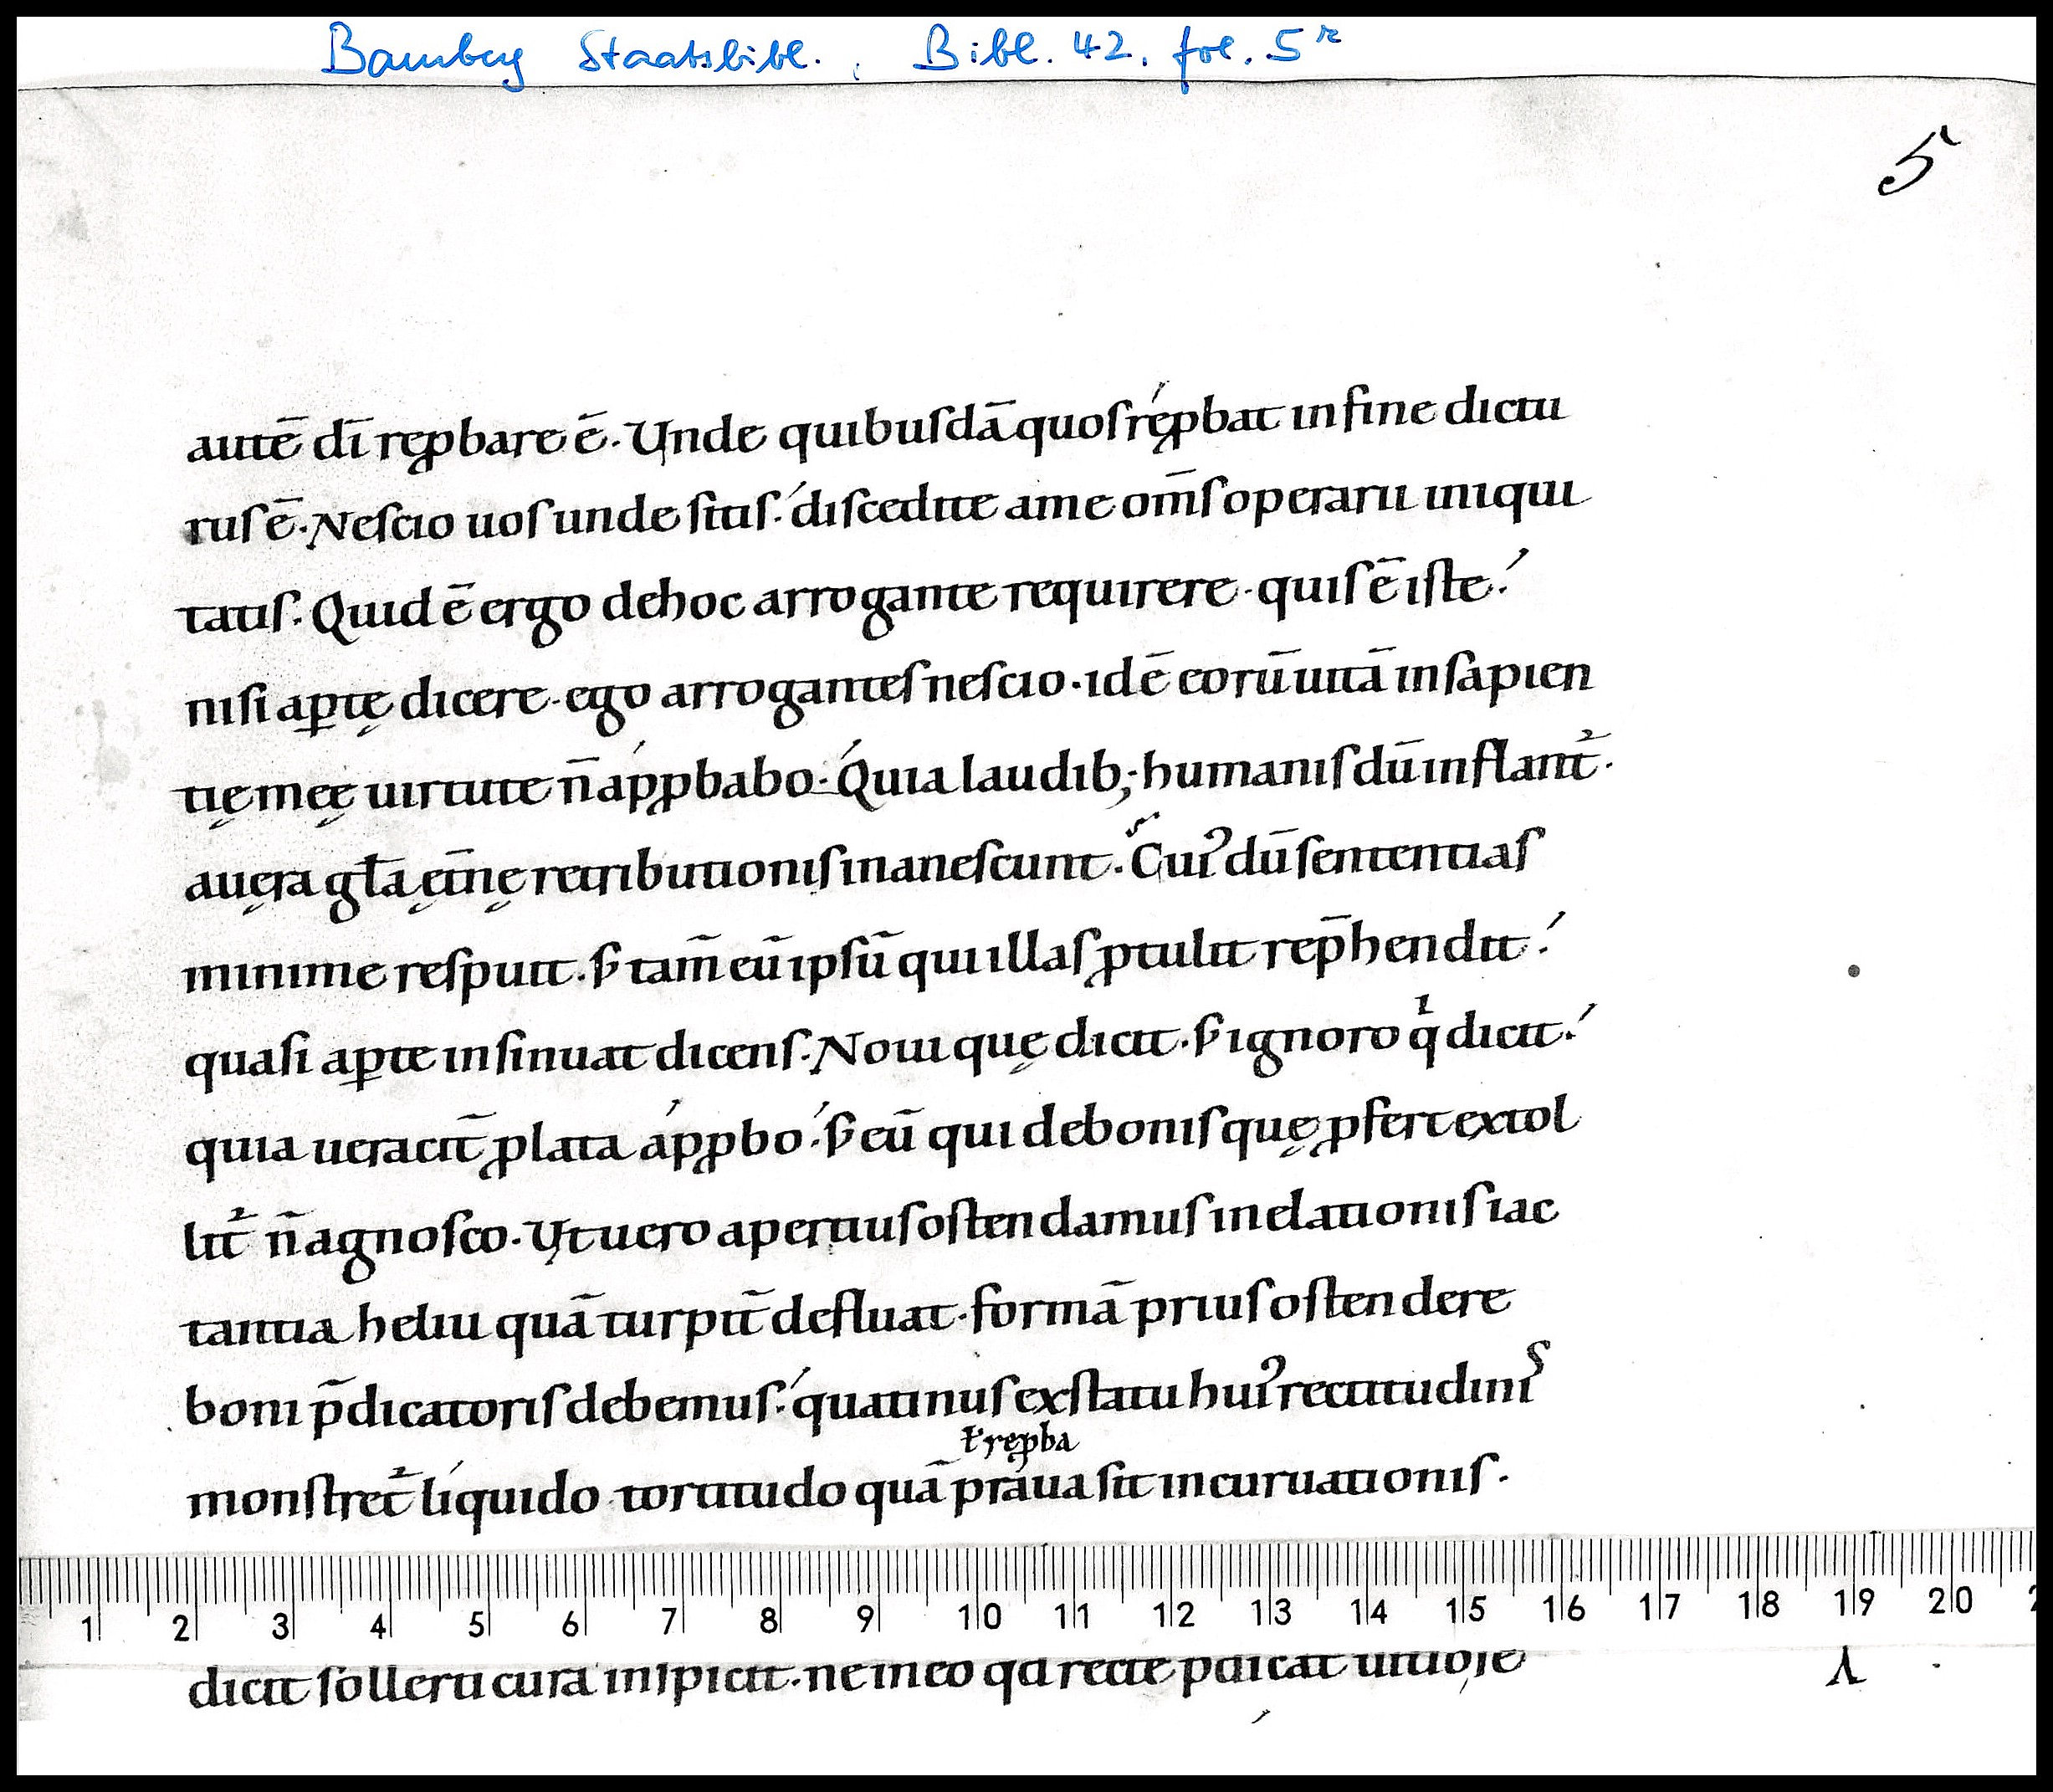 Bamberg Staatsbibl., Bibl. 42, fol. 5r
5
autē dī reꝓbare ē. Unde quibuſdā quoſ reꝓbat in fine dictu
ruſ ē. Neſcio uoſ unde ſitiſ. diſcedite a me om̄ſ operarii iniqui
tatiſ. Quid ē ergo de hoc arrogante requirere. quiſ ē iſte?
niſi aꝑtę dicere. ego arroganteſ neſcio. id ē eorū uitā in ſapien
tię meę uirtute n̄ apꝓbabo. Quia laudib; humaniſ dū inflant̉.
a uęra gl̄a ęt̄nę retributioniſ inaneſcunt. Cuiꝰ dū ſententiaſ
minime reſpuit. ſꝫ tam̄ eū ipſū qui illaſ ꝓtulit rep̄hendit?
quaſi aꝑte inſinuat dicenſ. Noui quę dicit. ſꝫ ignoro qͥ dicit?
quia ueracit̄ ꝓlata apꝓbo. ſꝫ eū qui de boniſ quę ꝓfert extol
lit̉ n̄ agnoſco. Ut uero apertiuſ oſtendamuſ in elationiſ iac
tantia heliu quā turpit̄ defluat. formā priuſ oſtendere
boni p̄dicatoriſ debemuſ. quatinuſ ex ſtatu huiꝰ rectitudiniſ
ł reꝓba
monſtret̉ liquido tortitudo quā praua ſit incuruationiſ.
1 2 3 4 5 6 7 8 9 10 11 12 13 14 15 16 17 18 19 20
dicit ſollerti cura inſpicit. ne in eo qd recte